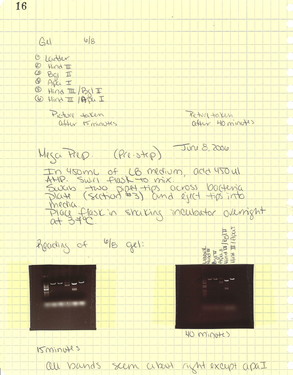 16
Gel 6/8
① Ladder
② Hind III
③ Bgl II
④ Apa I
⑤ Hind III/Bgl II
⑥ Hind III/Apa I
Picture taken after 15 minutes
Picture taken after 40 minutes
Mega Prep (Pre-step) Jun 8, 2006
In 450mL of LB medium, add 450ul
AMP. Swirl flask to mix
Swab two pipet tips across bacteria
plate (section #3) and eject tips into
media
Place flask in shaking incubator overnight
at 37°C
Reading of 6/8 gel:
15 minutes
40 minutes
All bands seem about right except apa I